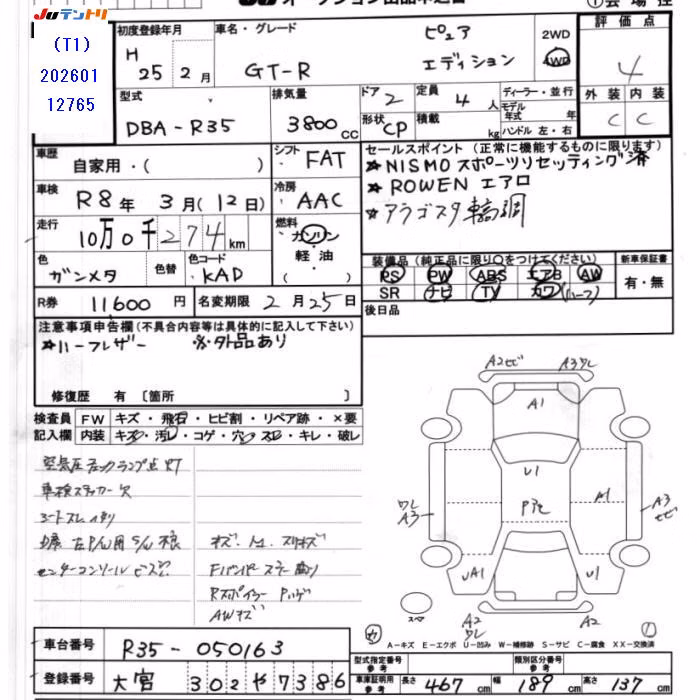 JUナントリ
(T1)
202601
12765
初度登録年月
H 25年 2月
車名・グレード
GT-R ピュア エディション
2WD
4WD
評価点
4
外装 内装
C C
型式
DBA-R35
排気量
3800cc
ドア 2
形状 CP
定員 4人
積載 kg
ディーラー・並行
モデル年式 年
ハンドル 左・右
車歴
自家用・( )
シフト FAT
車検
R8年 3月(12日)
冷房 AAC
走行
10万0千274km
燃料
ガソリン
軽油
( )
色
ガンメタ
色替
色コード
KAD
R券 11600円
名変期限 2月25日
セールスポイント (正常に機能するものに限ります)
★NISMOスポーツリセッティング済
★ROWEN エアロ
★アラゴスタ車高調
装備品(純正品に限り〇をつけてください)
PS PW ABS エアB AW
SR ナビ TV カワ(ハーフ)
新車保証書
有・無
後日品
注意事項申告欄(不具合内容等は具体的に記入して下さい)
★ハーフレザー ※外品あり
修復歴 有 〔箇所 〕
検査員記入欄
FW キズ・飛石・ヒビ割・リペア跡・×要
内装 キズ・汚レ・コゲ・穴・スレ・キレ・破レ
空気圧チェックランプ点灯
車検ステッカー欠
シートスレ
センターコンソール
キズ・スリキズ
Fバンパー
Rスポイラー ハゲ
AWキズ
A2ヒビ A3ワレ
A1
U1
A1
ワレ
A3
A3
ヒビ
UA1
U1
A2
ワレ
A2
スペア
A-キズ E-エクボ U-凹み W-補修跡 S-サビ C-腐食 XX-交換済
車台番号
R35-050163
登録番号
大宮 302 や 7386
型式指定番号 参考
類別区分番号 参考
車庫証明用 参考
長さ 467cm 幅 189cm 高さ 137cm